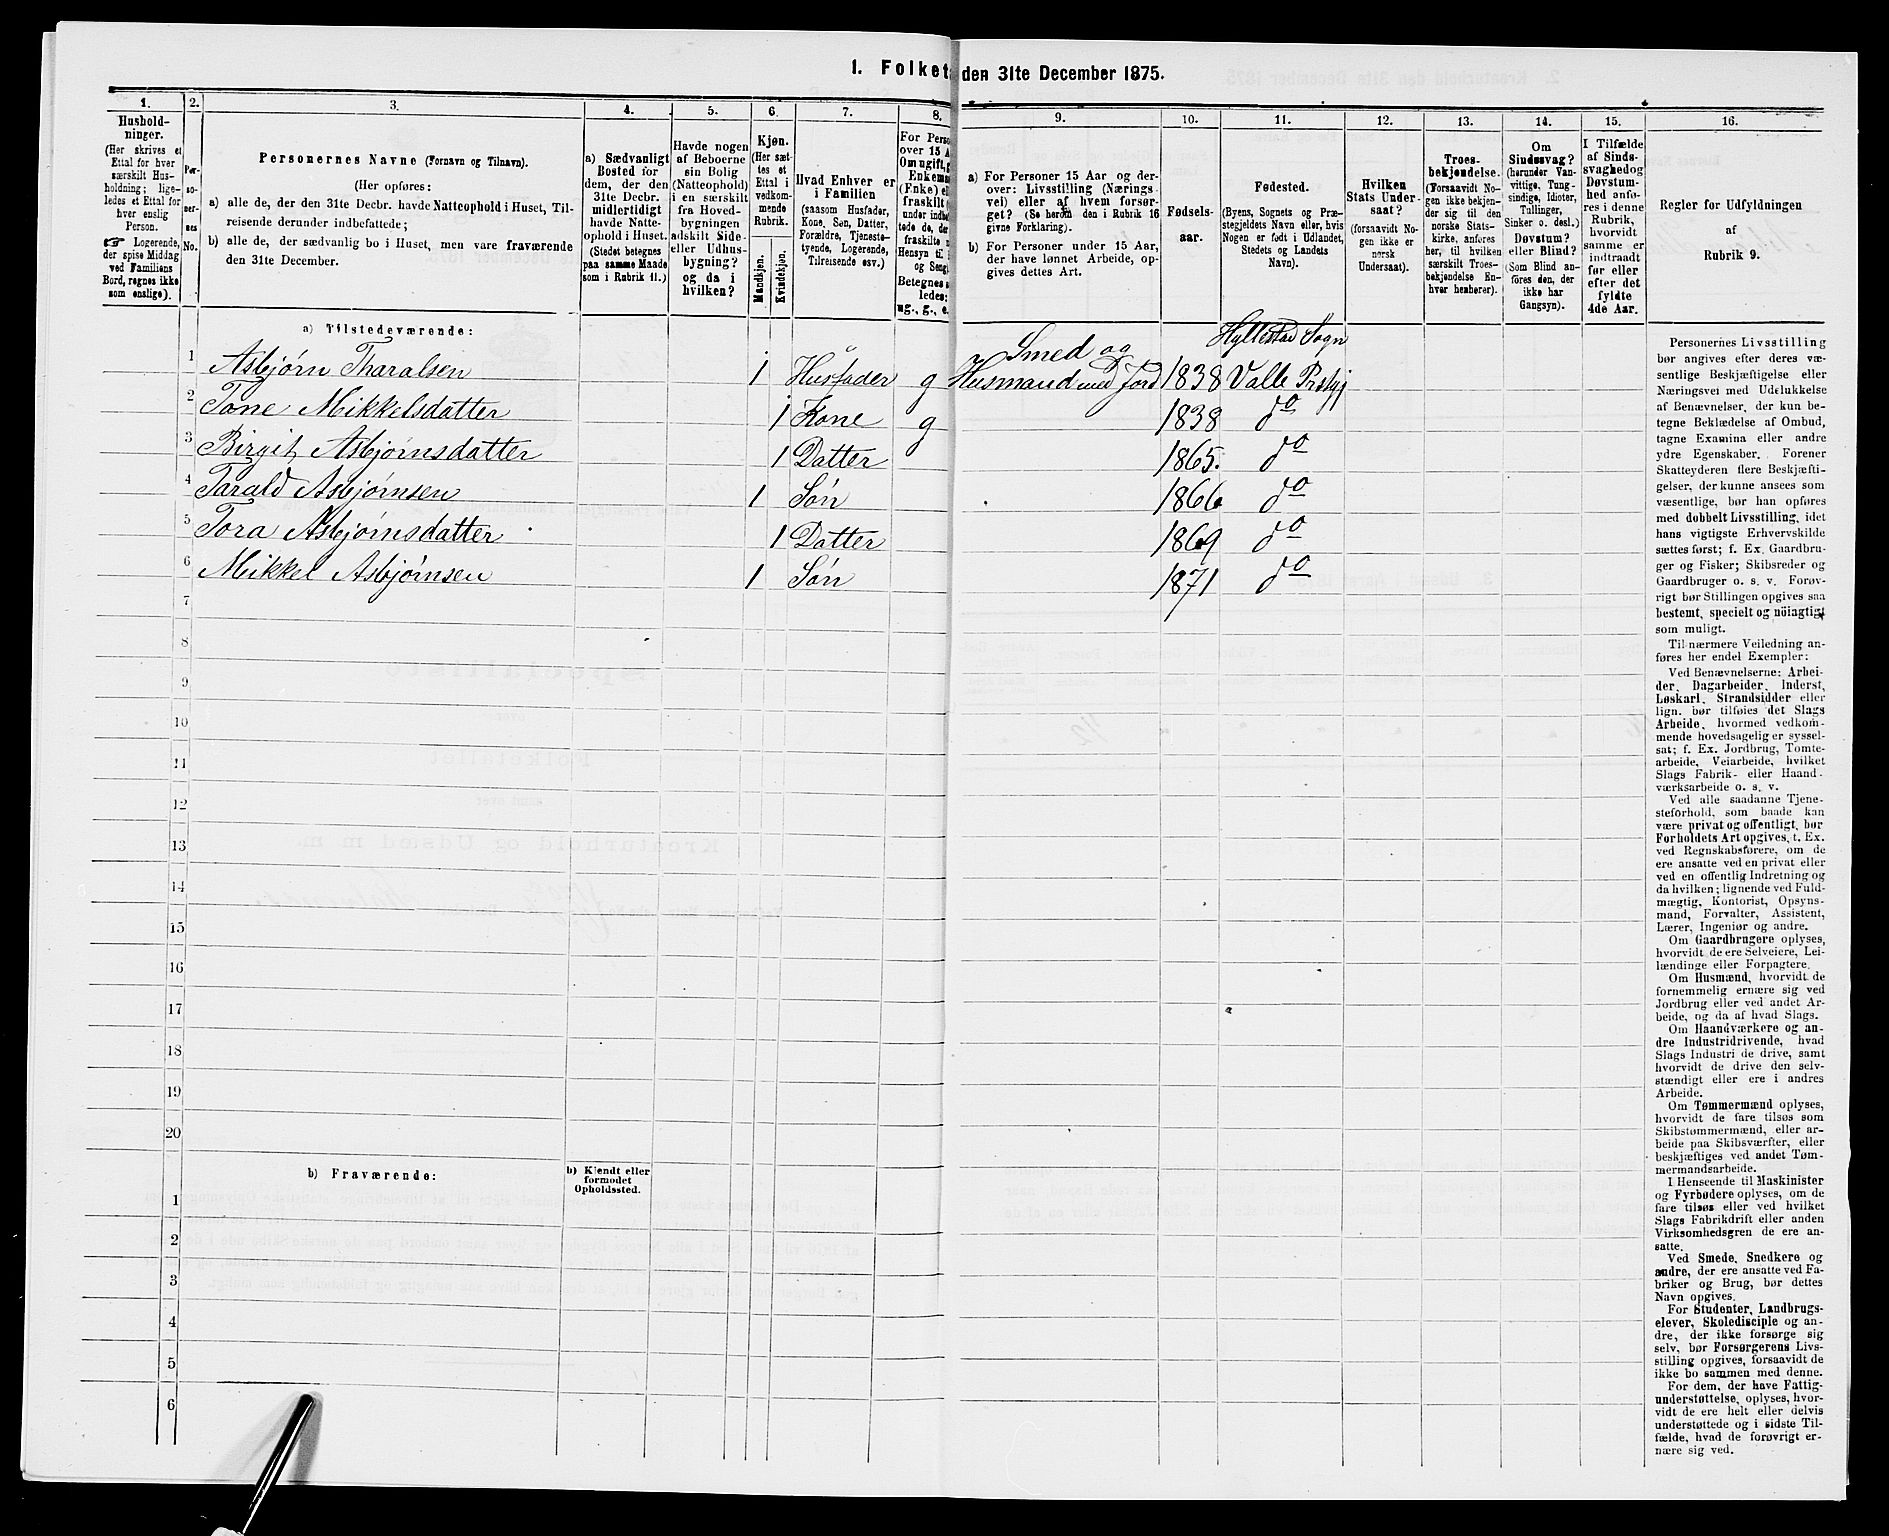 1. Folket den 31te December 1875.
1.
Hushold-
ninger.
(Her skrives et
Ettal for hver
særskilt Hus-
holdning; lige-
ledes et Ettal for
hver enslig
Person.
☞ Logerende,
der spise Middag
ved Familiens
Bord, regnes ikke
som enslige).
2.
Per-
so-
ner-
nes
No.
3.
Personernes Navne (Fornavn og Tilnavn).
(Her opføres:
a) alle de, der den 31te Decbr. havde Natteophold i Huset, Til-
reisende derunder indbefattede;
b) alle de, der sædvanlig bo i Huset, men vare fraværende
den 31te December.
4.
a) Sædvanligt
Bosted for
dem, der den
31te Decbr.
midlertidigt
havde Natte-
ophold i Huset.
(Stedet betegnes
paa samme Maade
som i Rubrik 11.)
5.
Havde nogen
af Beboerne
sin Bolig
(Natteophold)
i en særskilt
fra Hoved-
bygningen
adskilt Side-
eller Udhus-
bygning?
og da i
hvilken?
6.
Kjøn.
(Her sæt-
tes et
Ettal i
vedkom-
mende
Rubrik.
Mandkjøn.
Kvindekjøn.
7.
Hvad Enhver er
i Familien
(saasom Husfader,
Kone, Søn, Datter,
Forældre, Tjeneste-
tyende, Logerende,
Tilreisende osv.)
8.
For Perso
over 15 A
Om ugift, g
Enkem
(Enke) el
fraskilt
under indbe
tede de, der
fraskilte
Hensyn til
og Seng
Betegnes s
ledes:
ug., g., e.
9.
a) For Personer 15 Aar og der-
over: Livsstilling (Nærings-
vei) eller af hvem forsør-
get? (Se herom den i Rubrik 16
givne Forklaring).
b) For Personer under 15 Aar,
der have lønnet Arbeide, op-
gives dettes Art.
10.
Fødsels-
aar.
11.
Fødested.
(Byens, Sognets og Præ-
stegjeldets Navn eller, hvis
Nogen er født i Udlandet,
Stedets og Landets
Navn).
12.
Hvilken
Stats Under-
saat?
(forsaavidt No-
gen ikke er
norsk
Undersaat).
13.
Troes-
bekjendelse.
(Forsaavidt No-
gen ikke bekjen-
der sig til den
norske Stats-
kirke, anføres
her, til hvilken
særskilt Troes-
bekjendelse En-
hver henhører).
14.
Om
Sindssvag?
(herunder Van-
vittige, Tung-
sindige, Idioter,
Tullinger,
Sinker o. desl.)
Døvstum?
eller Blind?
(Som Blind an-
føres den, der
ikke har
Gangsyn).
15.
I Tilfælde
af Sinds-
svaghed og
Døvstum-
hed anfø-
res i denne
Rubrik,
hvorvidt
samme er
indtraadt
før eller
efter det
fyldte
4de Aar.
16.
Regler for Udfyldningen
af
Rubrik 9.
a) Tilstedeværende:
Smed og Hyllestad Sogn
1 Asbjørn Tharalsen 1 Husfader g Husmand med Jord 1838 Valle Prstgj
2 Tone Mikkelsdatter 1 Kone g 1838 do
3 Birgit Asbjørnsdatter 1 Datter 1865. do
4 Tarald Asbjørnsen 1 Søn 1866 do
5 Tora Asbjørnsdatter 1 Datter 1869 do
6 Mikkel Asbjørnsen 1 Søn 1871 do
7
8
9
10
11
12
13
14
15
16
17
18
19
20
b) Fraværende:
b) Kjendt eller
formodet
Opholdssted.
1
2
3
4
5
6
Personernes Livsstilling
bør angives efter deres væ-
sentlige Beskjæftigelse eller
Næringsvei med Udelukkelse
af Benævnelser, der kun be-
tegne Beklædelse af Ombud,
tagne Examina eller andre
ydre Egenskaber. Forener
Skatteyderen flere Beskjæfti-
gelser, der kunne ansees som
væsentlige, bør han opføres
med dobbelt Livsstilling, idet
hans vigtigste Erhvervskilde
sættes først; f. Ex. Gaardbru-
ger og Fisker; Skibsreder og
Gaardbruger o. s. v. Forøv-
rigt bør Stillingen opgives saa
bestemt, specielt og nöiagtigt
som muligt.
Til nærmere Veiledning an-
føres her endel Exempler:
Ved Benævnelserne: Arbei-
der, Dagarbeider, Inderst,
Løskarl, Strandsidder eller
lign. bør tilføies det Slags
Arbeide, hvormed vedkom-
mende hovedsagelig er syssel-
sat; f. Ex. Jordbrug, Tomte-
arbeide, Veiarbeide, hvilket
Slags Fabrik- eller Haand-
værksarbeide o. s. v.
Ved alle saadanne Tjene-
steforhold, som baade kan
være privat og offentligt, bør
Forholdets Art opgives, t. Ex.
ved Regnskabsførere, om de
ere ansatte ved en privat eller
ved en offentlig Indretning og
da hvilken; lignende ved Fuld-
mægtig, Kontorist, Opsyns-
mand, Forvalter, Assistent,
Lærer, Ingeniør og andre.
Om Gaardbrugere oplyses,
hvorvidt de ere Selveiere, Lei-
lændinge eller Forpagtere.
Om Husmænd, hvorvidt de
fornemmelig ernære sig ved
Jordbrug eller ved andet Ar-
beide, og da af hvad Slags.
Om Haandværkere og an-
dre Industridrivende, hvad
Slags Industri de drive, samt
hvorvidt de drive den selv-
stændigt eller ere i andres
Arbeide.
Om Tømmermænd oplyses,
hvorvidt de fare tilsøs som
Skibstømmermænd, eller ar-
beide paa Skibsværfter, eller
beskjæftiges ved andet Tøm-
mermandsarbeide.
I Henseende til Maskinister
og Fyrbødere oplyses, om de
fare tilsøs eller ved hvilket
Slags Fabrikdrift eller anden
Virksomhedsgren de ere an-
satte.
Ved Smede, Snedkere og
andre, der ere ansatte ved Fa-
briker og Brug, bør dettes
Navn opgives.
For Studenter, Landbrugs-
elever, Skoledisciple og an-
dre, der ikke forsørge sig
selv, bør Forsørgerens Livs-
stilling opgives, forsaavidt de
ikke bo sammen med denne.
For dem, der have Fattig-
understøttelse, oplyses, hvor-
vidt de ere helt eller delvis
understøttede og i sidste Til-
fælde, hvad de forøvrigt er-
nære sig ved.